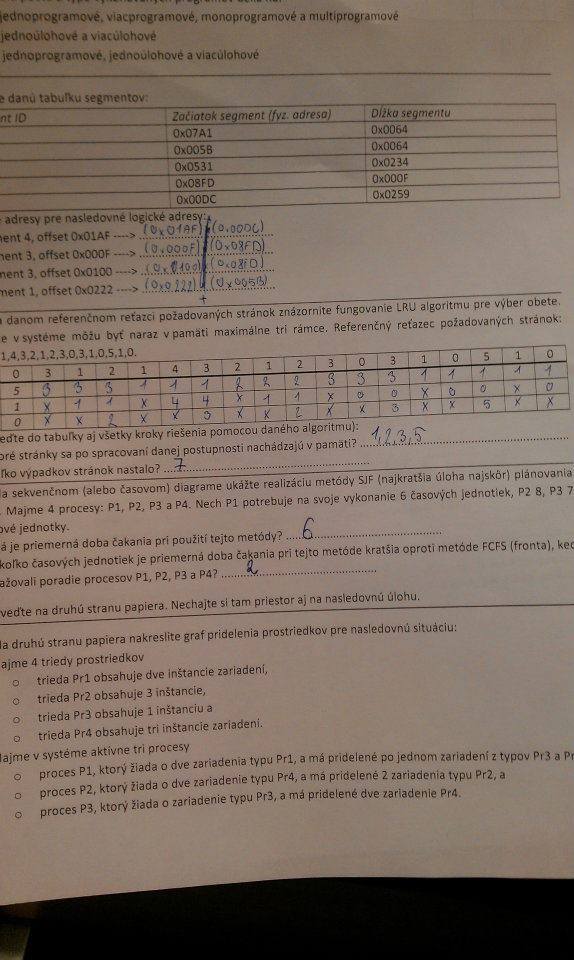 jednoprogramové, viacprogramové, monoprogramové a multiprogramové
jednoúlohové a viacúlohové
jednoprogramové, jednoúlohové a viacúlohové
e danú tabuľku segmentov:
nt ID Začiatok segment (fyz. adresa) Dĺžka segmentu
0x07A1 0x0064
0x005B 0x0064
0x0531 0x0234
0x08FD 0x000F
0x00DC 0x0259
adresy pre nasledovné logické adresy:
ment 4, offset 0x01AF ----> (0x01AF) (0x00DC)
ment 3, offset 0x000F ----> (0x000F) (0x08FD)
ment 3, offset 0x0100 ----> (0x0100) (0x08FD)
ment 1, offset 0x0222 ----> (0x0222) (0x005B)
+
a danom referenčnom reťazci požadovaných stránok znázornite fungovanie LRU algoritmu pre výber obete.
e v systéme môžu byť naraz v pamäti maximálne tri rámce. Referenčný reťazec požadovaných stránok:
1,4,3,2,1,2,3,0,3,1,0,5,1,0.
0 3 1 2 1 4 3 2 1 2 3 0 3 1 0 5 1 0
5 3 3 3 1 1 1 2 2 2 3 3 3 1 1 1 1 1
1 x 1 1 x 4 4 x 1 1 x 0 0 x 0 0 x 0
0 x x 2 x x 3 x x 2 x x 3 x x 5 x x
eďte do tabuľky aj všetky kroky riešenia pomocou daného algoritmu):
oré stránky sa po spracovaní danej postupnosti nachádzajú v pamäti? 1,2,3,5
ľko výpadkov stránok nastalo? 7
la sekvenčnom (alebo časovom) diagrame ukážte realizáciu metódy SJF (najkratšia úloha najskôr) plánovania
. Majme 4 procesy: P1, P2, P3 a P4. Nech P1 potrebuje na svoje vykonanie 6 časových jednotiek, P2 8, P3 7
ové jednotky.
á je priemerná doba čakania pri použití tejto metódy? 6
koľko časových jednotiek je priemerná doba čakania pri tejto metóde kratšia oproti metóde FCFS (fronta), keď
ažovali poradie procesov P1, P2, P3 a P4? 2
veďte na druhú stranu papiera. Nechajte si tam priestor aj na nasledovnú úlohu.
la druhú stranu papiera nakreslite graf pridelenia prostriedkov pre nasledovnú situáciu:
ajme 4 triedy prostriedkov
o trieda Pr1 obsahuje dve inštancie zariadení,
o trieda Pr2 obsahuje 3 inštancie,
o trieda Pr3 obsahuje 1 inštanciu a
o trieda Pr4 obsahuje tri inštancie zariadení.
Majme v systéme aktívne tri procesy
o proces P1, ktorý žiada o dve zariadenia typu Pr1, a má pridelené po jednom zariadení z typov Pr3 a Pr
o proces P2, ktorý žiada o dve zariadenie typu Pr4, a má pridelené 2 zariadenia typu Pr2, a
o proces P3, ktorý žiada o zariadenie typu Pr3, a má pridelené dve zariadenie Pr4.